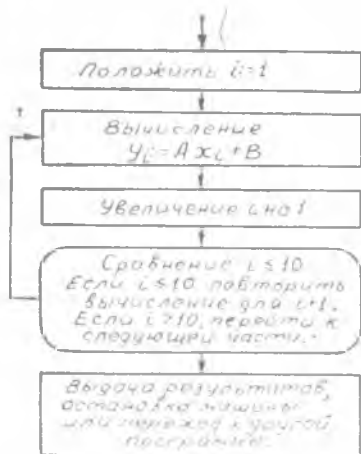 Положить i=1
Вычисление
yi=Axi+B
Увеличение i на 1
Сравнение i≤10
Если i≤10, повторить
вычисление для i+1.
Если i>10, перейти к
следующей части.
Выдача результатов,
остановка машины
или переход к другой
программе.